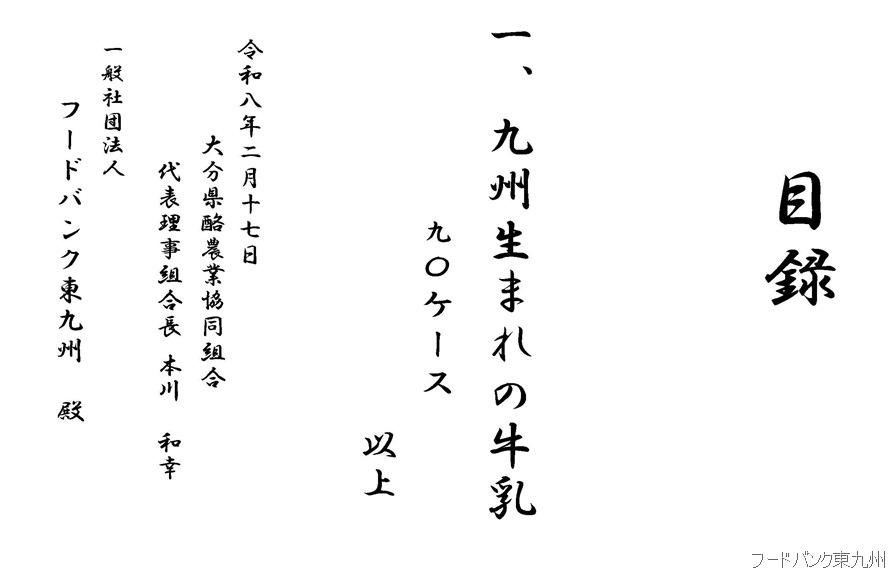 目録
一、九州生まれの牛乳
九〇ケース
以上
令和八年二月十七日
大分県酪農業協同組合
代表理事組合長 本川 和幸
一般社団法人
フードバンク東九州 殿
フードバンク東九州